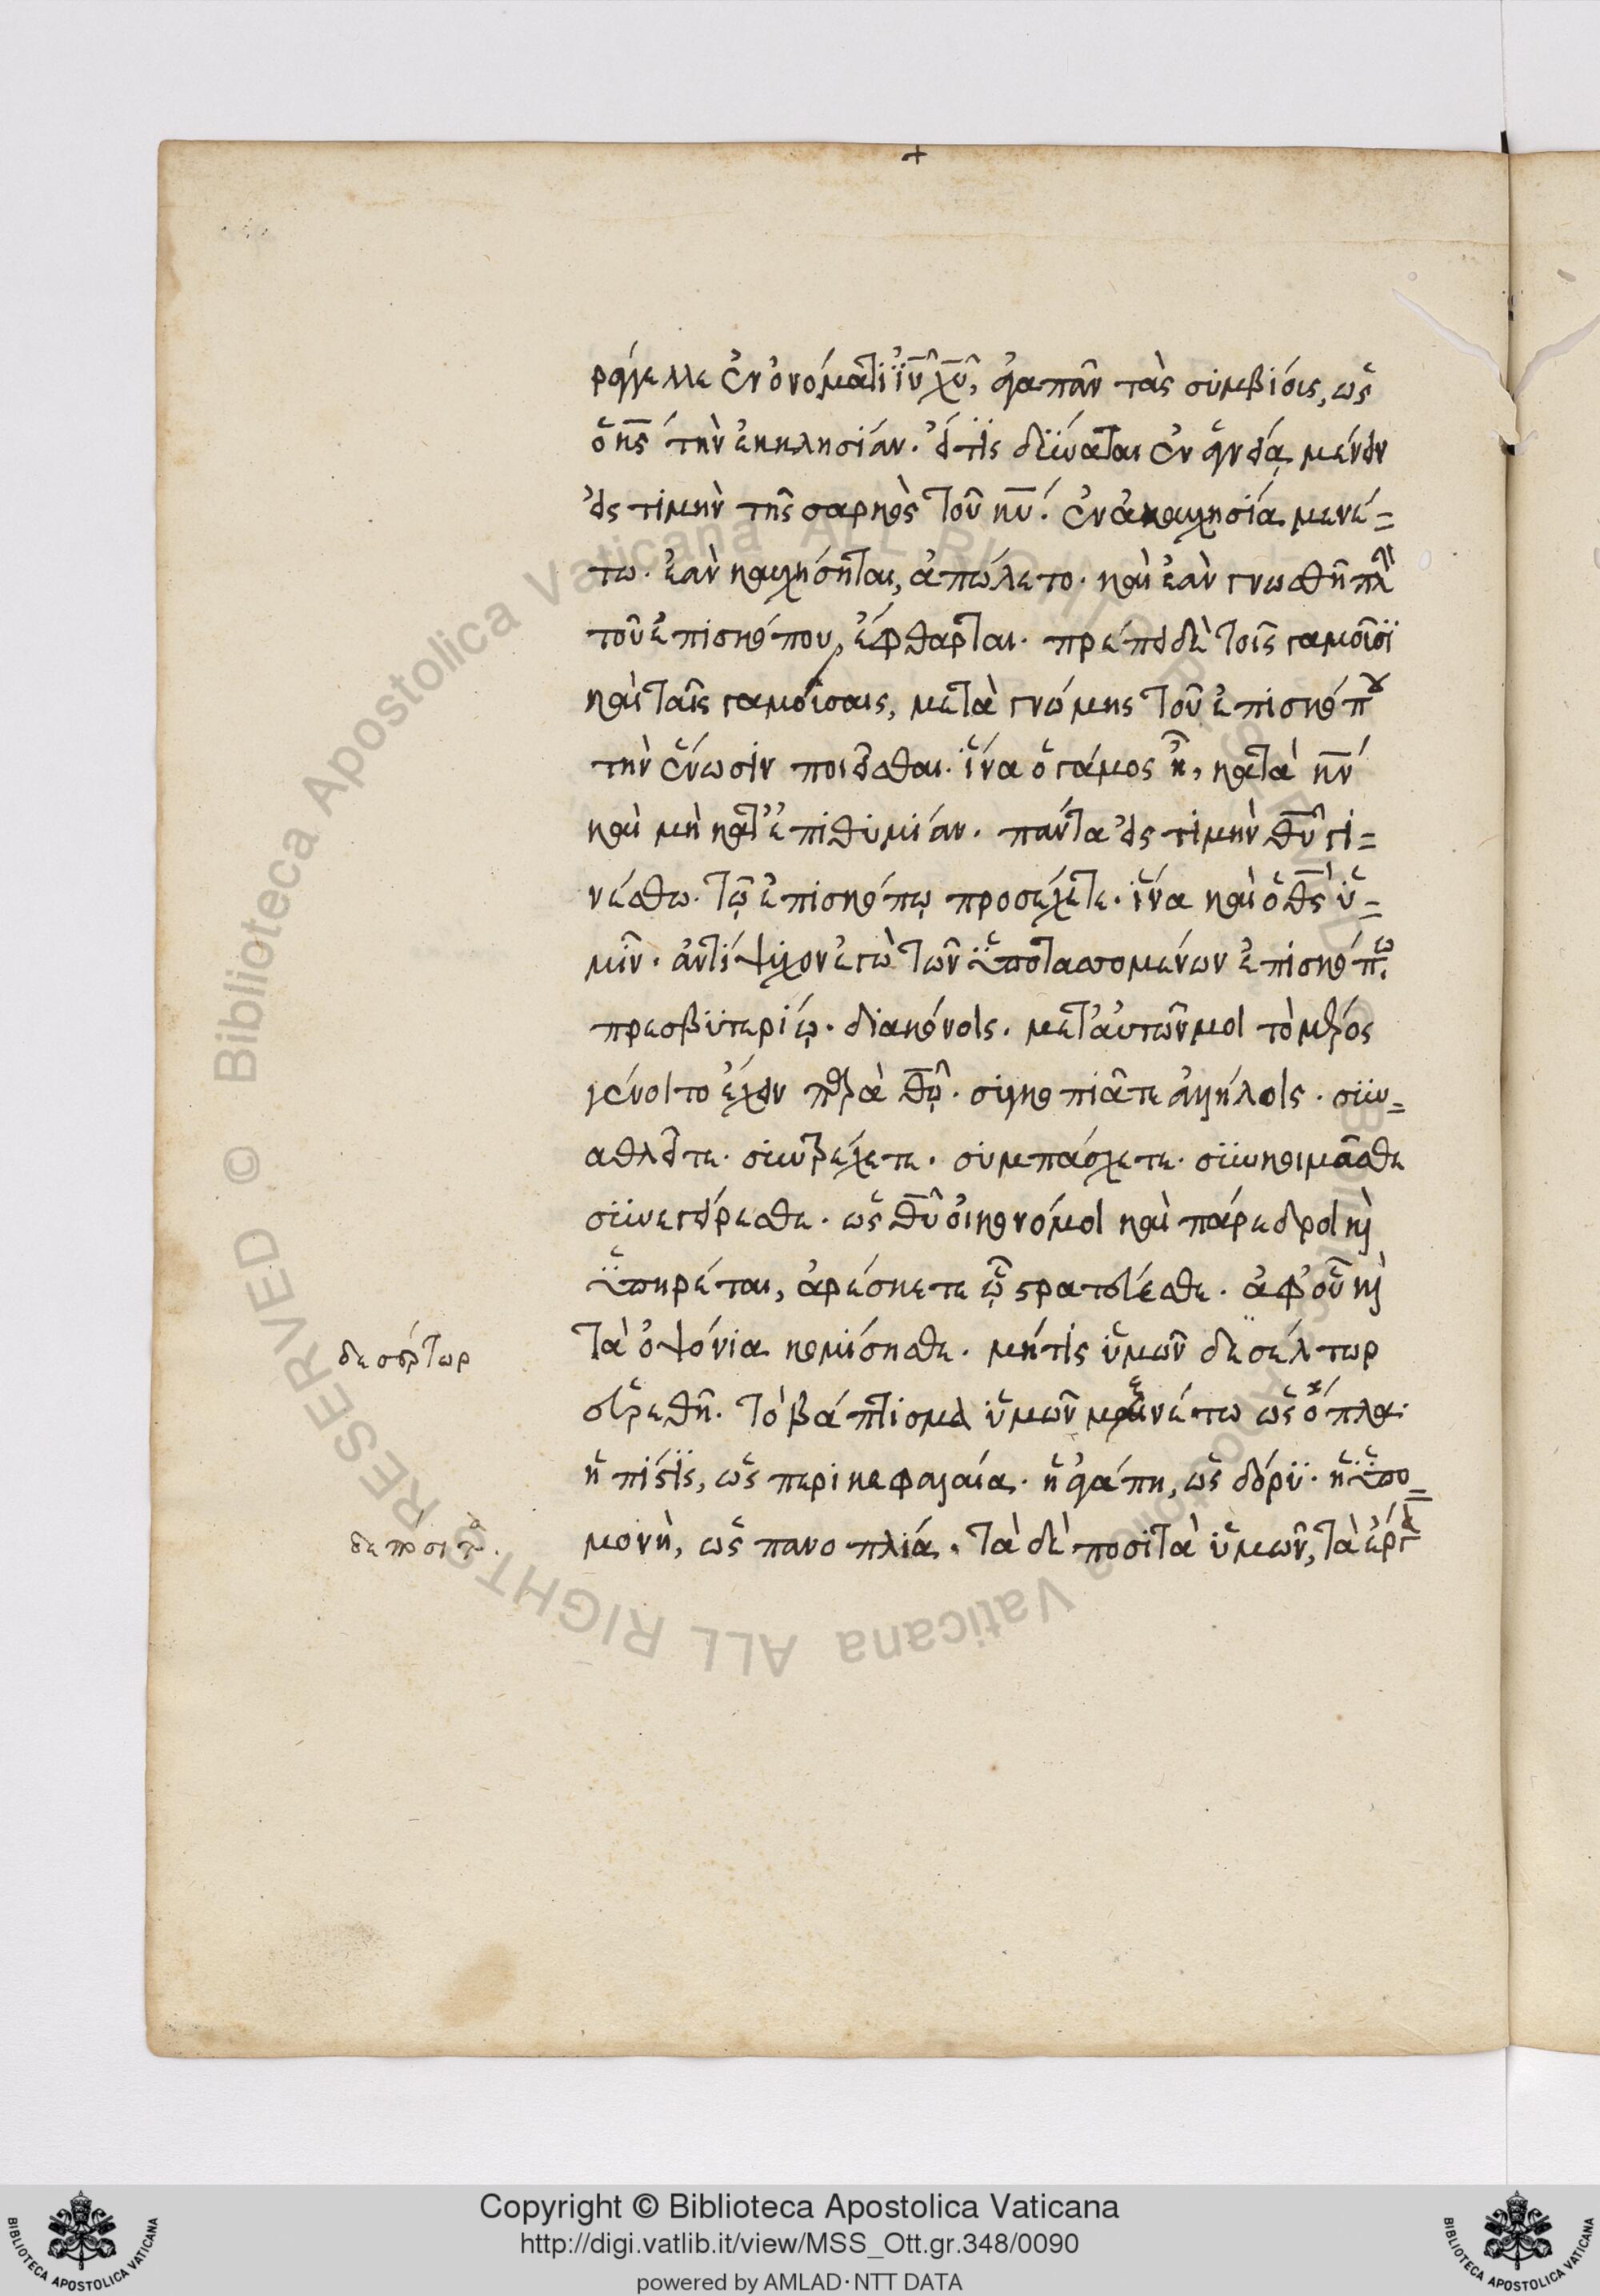 +
ράγγελλε ἐν ὀνόματι ἰῡ χῡ, ἀγαπᾶν τὰς συμβίους, ὡς
ὁ κ̅ς̅ τὴν ἐκκλησίαν. εἴ τις δύναται ἐν ἁγνεία μένειν
εἰς τιμὴν τῆς σαρκὸς τοῦ κ̅υ̅. ἐν ἀκαυχησία μενέ=
τω. ἐὰν καυχήσηται, ἀπώλετο. καὶ ἐὰν γνωσθῆ πλὴν
τοῦ ἐπισκόπου, ἔφθαρται. πρέπει δὲ τοῖς γαμοῦσϊ
καὶ ταῖς γαμούσαις, μετὰ γνώμης τοῦ ἐπισκόπου
τὴν ἕνωσιν ποιεῖσθαι. ἵνα ὁ γάμος ἦ, κατὰ κ̅ν̅
καὶ μὴ κατ' ἐπιθυμίαν. πάντα εἰς τιμὴν θ̅υ̅ γι=
νέσθω. τῶ ἐπισκόπω προσέχετε. ἵνα καὶ ὁ θ̅ς̅ ὑ=
μῖν. ἀντίψυχον ἐγὼ τῶν ὑποτασσομένων ἐπισκόπω.
πρεσβυτερίω. διακόνοις. μετ' αὐτῶν μοι τὸ μέρος
γένοιτο ἔχειν παρὰ θ̅ῶ̅. συγκοπιᾶτε ἀλλήλοις. συν=
αθλεῖτε. συντρέχετε. συμπάσχετε. συνκοιμᾶσθε
συνεγείρεσθε. ὡς θ̅υ̅ οἰκονόμοι καὶ πάρεδροι καὶ
ὑπηρέται, ἀρέσκετε ὧ στρατεύεσθε. ἀφ' οὗ καὶ
τὰ ὀψόνια κομίσησθε. μήτις ὑμῶν δεσέλτωρ
δεσέρτωρ
εὑρεθῆ. τὸ βάπτισμα ὑμῶν μενέτω ὡς ὅπλα.
ἡ πίστις, ὡς περικεφαλαία. ἡ ἀγάπη, ὡς δόρυ. ἡ ὑπο=
μονὴ, ὡς πανοπλία. τὰ δεπόσιτα ὑμῶν, τὰ ἔργα
δεπόσιτα.
Copyright © Biblioteca Apostolica Vaticana
http://digi.vatlib.it/view/MSS_Ott.gr.348/0090
powered by AMLAD·NTT DATA